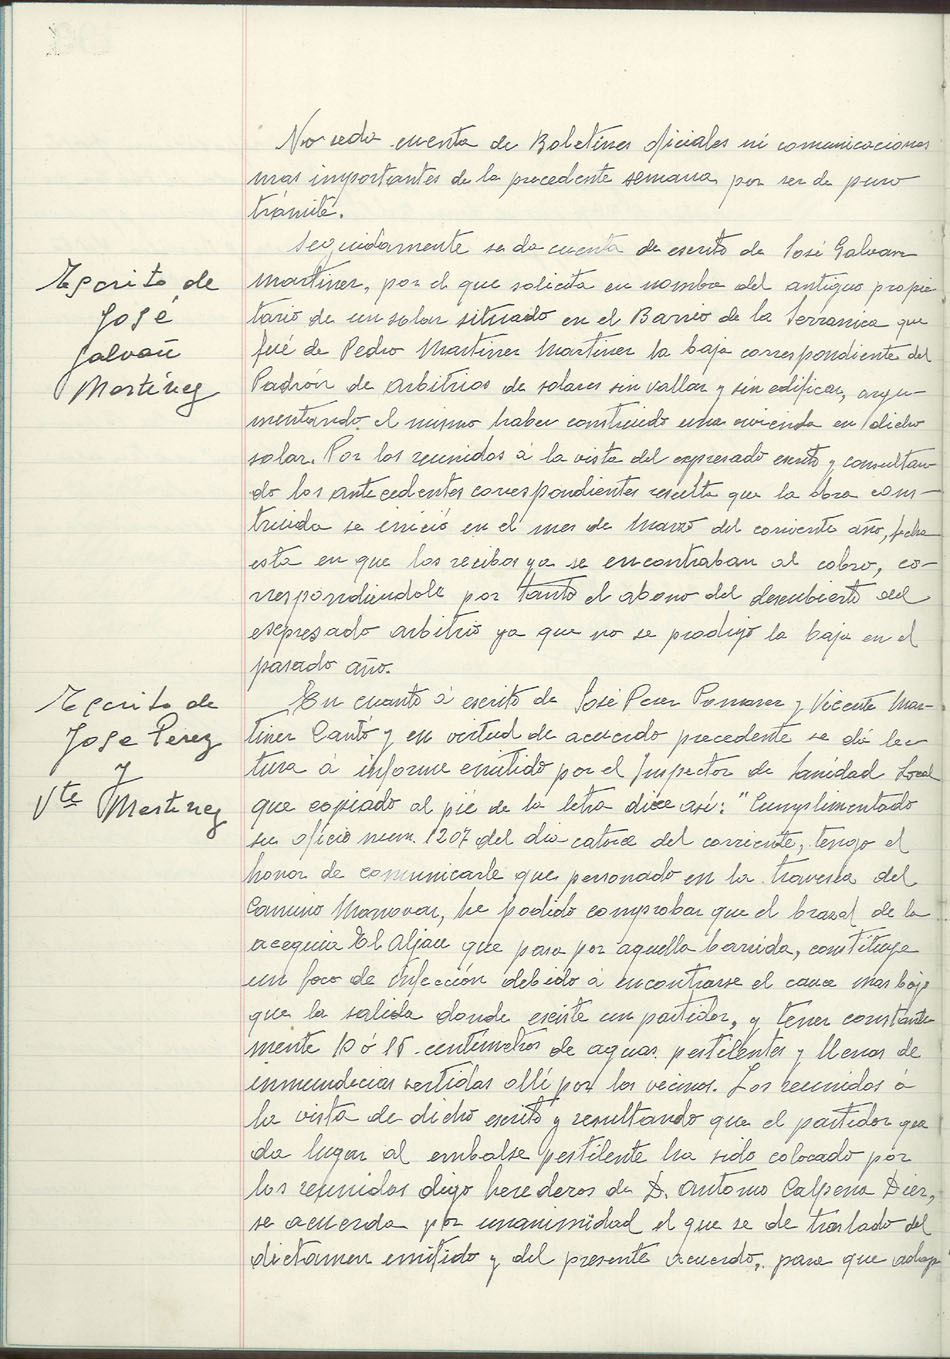 No se da cuenta de Boletines oficiales ni comunicaciones
mas importantes de la precedente semana por ser de puro
trámite.
Seguidamente se da cuenta de escrito de José Galvan
Martinez, por el que solicita en nombre del antiguo propie
tario de un solar situado en el Barrio de la Serranica que
fué de Pedro Martinez Martinez la baja correspondiente del
Padrón de arbitrios de solares sin vallar y sin edificar, argu-
mentando el mismo haber construido una vivienda en dicho
solar. Por los reunidos á la vista del expresado escrito y consultan
do los antecedentes correspondientes resulta que la obra cons-
truida se inició en el mes de Marzo del corriente año, fecha
esta en que los recibos ya se encontraban al cobro, co-
rrespondiendole por tanto el abono del descubierto del
espresado arbitrio ya que no se produjo la baja en el
pasado año.
En cuanto á escrito de José Perez Pomares y Vicente Mar-
tinez Cantó y en virtud de acuerdo precedente se dió lec
tura a informe emitido por el Inspector de Sanidad Local
que copiado al pié de la letra dice así: "Cumplimentado
su oficio num. 1207 del dia catorce del corriente, tengo el
honor de comunicarle que personado en la travesia del
Camino Monovar, he podido comprobar que el brazal de la
acequia El Aljau que pasa por aquella barriada, constituye
un foco de infección debido á encontrarse el cauce mas bajo
que la salida donde esiste un partidor, y tener constante
mente 10 ó 15 centimetros de aguas pestilentes y llenas de
inmundicias vertidas allí por los vecinos. Los reunidos á
la vista de dicho escrito y resultando que el partidor que
da lugar al embalse pestilente ha sido colocado por
los reunidos digo herederos de D. Antonio Calpena Diez,
se acuerda por unanimidad el que se de traslado del
dictamen emitido y del presente acuerdo, para que adop
Escrito de
José
Galvañ
Martínez
Escrito de
Jose Pérez
y
Vte Martínez